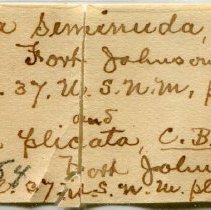 a seminuda,
Fort Johnson
. 37. U.S.N.M.,
and
plicata, C.B
54 Fort John
37. U.S.N.M. pl